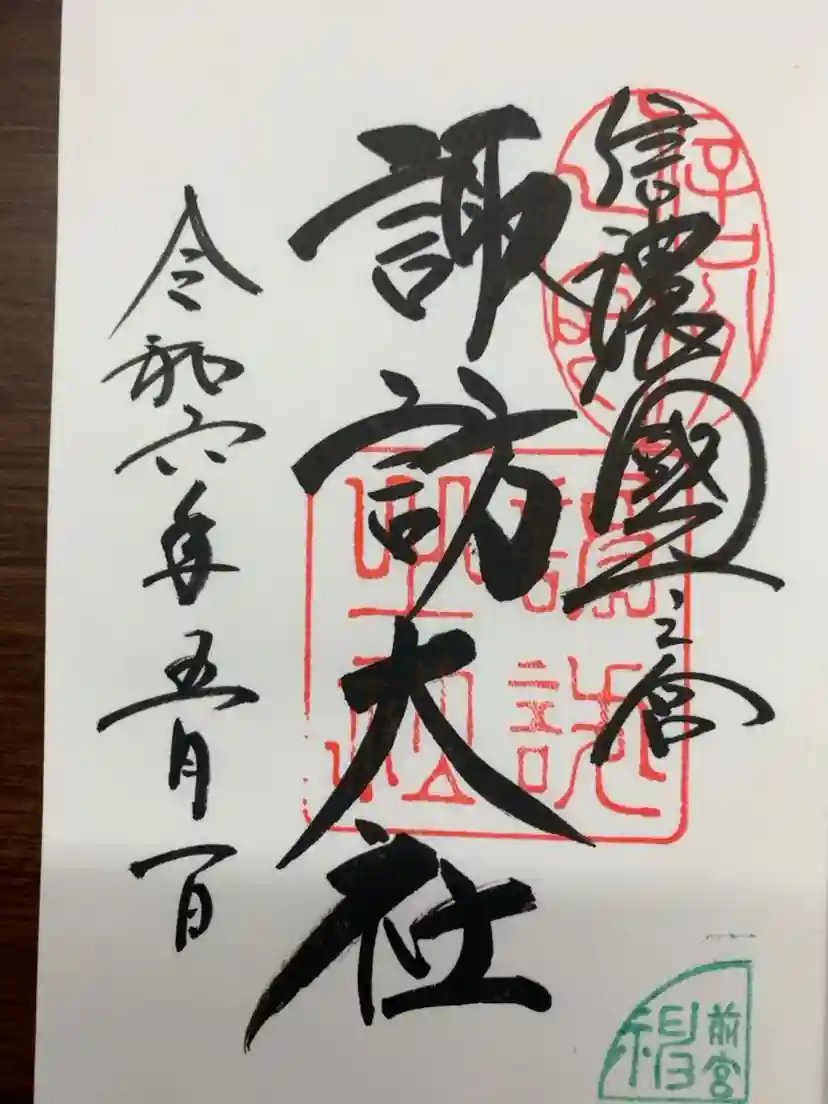 信濃國一之宮
諏訪大社
令和六年五月一日
前宮